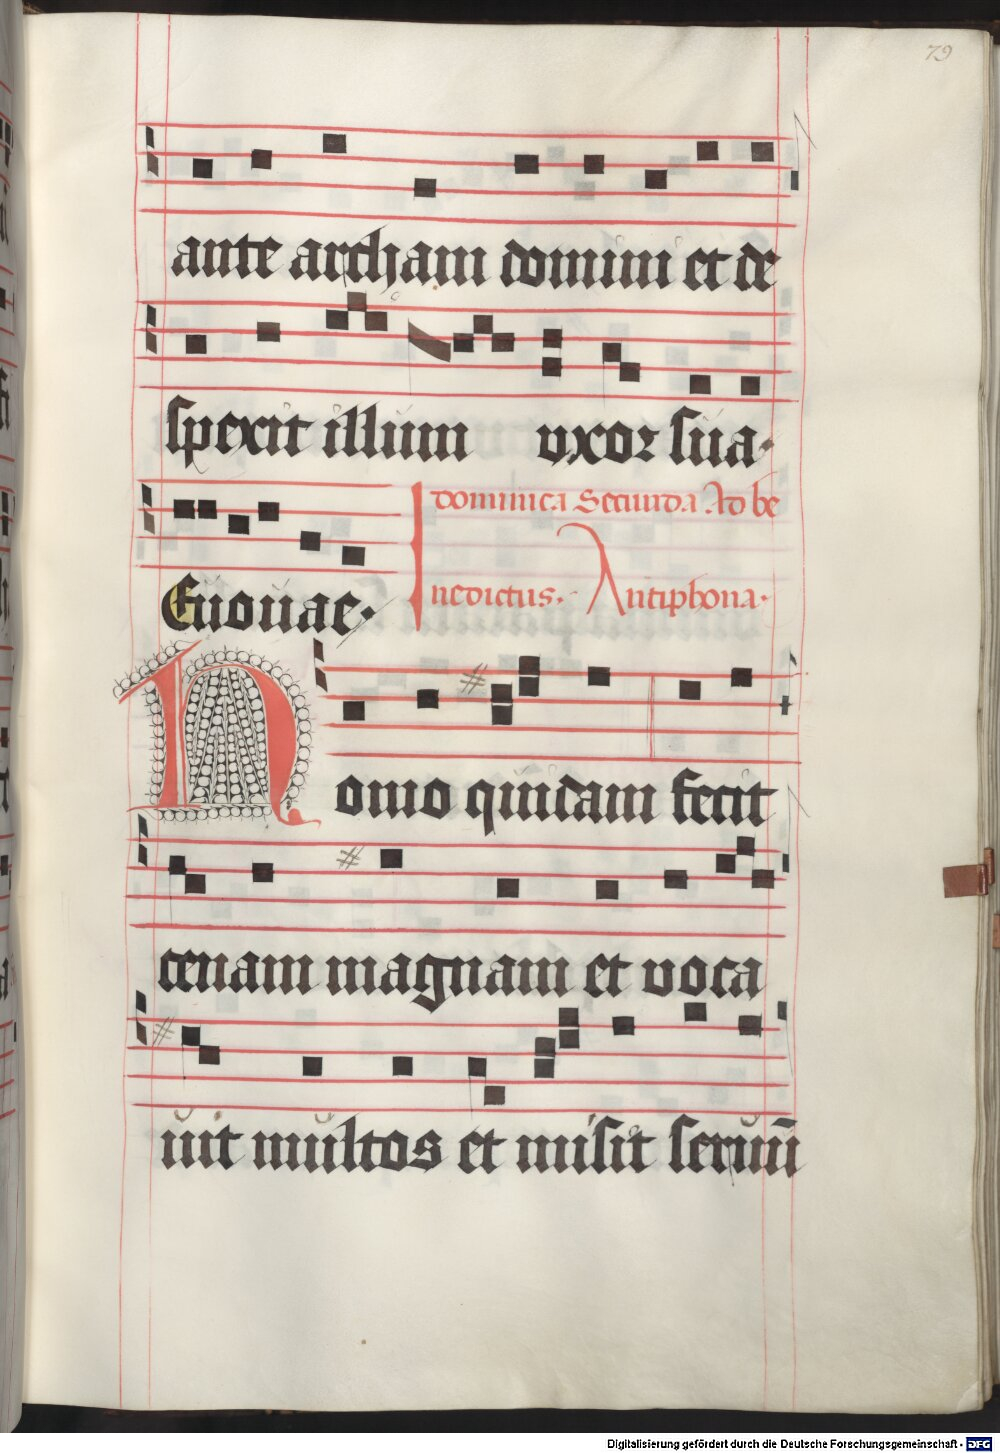 79
ante archam domini et de
spexit illum uxor sua.
dominica Secunda Ad be
Euouae.
nedictus. Antiphona.
Homo quidam fecit
cenam magnam et voca
uit multos et misit seruū
Digitalisierung gefördert durch die Deutsche Forschungsgemeinschaft - DFG